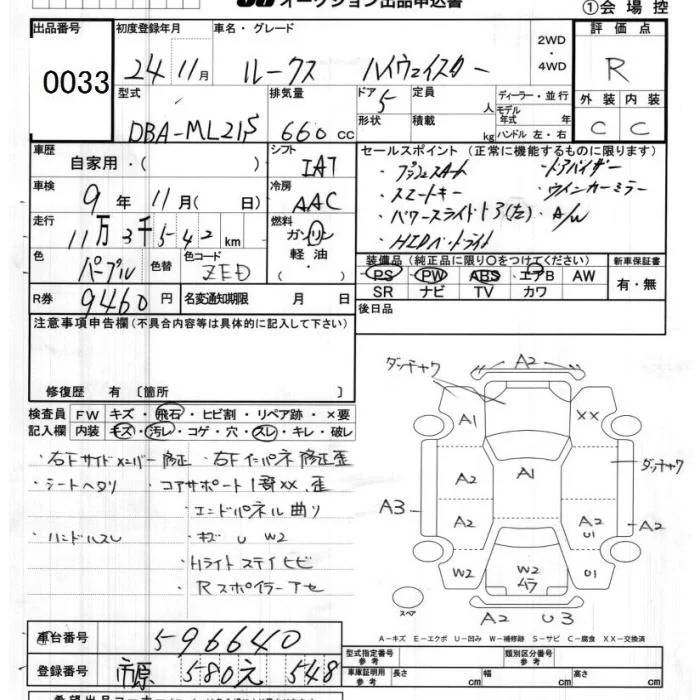 オークション出品申込書 ①会場控
出品番号 初度登録年月 車名・グレード 2WD・4WD 評価点
0033 24 11月 ルークス ハイウェイスター R
型式 排気量 ドア 定員 ディーラー・並行 外装 内装
DBA-ML21S 660 CC 5 人 モデル年式 年 C C
形状 積載 kg ハンドル 左・右
車歴 自家用・( ) シフト IAT セールスポイント(正常に機能するものに限ります)
・プッシュスタート ・ドアバイザー
車検 9年 11月( 日) 冷房 AAC ・スマートキー ・ウインカーミラー
走行 11万3千542km 燃料 ガソリン ・パワースライドドア(左) ・A/W
軽油 ・HIDヘッドライト
色 パープル 色替 色コード ZED ・( )
装備品(純正品に限り○をつけてください) 新車保証書
PS PW ABS エアB AW 有・無
SR ナビ TV カワ
R券 9460円 名変通知期限 月 日 後日品
注意事項申告欄(不具合内容等は具体的に記入して下さい)
修復歴 有 〔箇所 〕
検査員記入欄 FW キズ・飛石・ヒビ割・リペア跡・×要
内装 キズ・汚レ・コゲ・穴・スレ・キレ・破レ
・右Fサイドメンバー修正 ・右Fインパネ修正歪
・シートヘタリ ・コアサポート1部XX、歪
・エンドパネル曲り
・ハンドルスレ ・キズ U W2
・Hライトステイヒビ
・Rスポイラーアセ
ダッチャク A2
A1 XX
A1 ダッチャク
A2
A3 A2 A2 U1 A2
W2 W2 ムラ U1
スペア A2 U3
A-キズ E-エクボ U-凹み W-補修跡 S-サビ C-腐食 XX-交換済
車台番号 596640 型式指定番号 参考 類別区分番号 参考
登録番号 市原 580 え 548 車庫証明用 参考 長さ cm 幅 cm 高さ cm